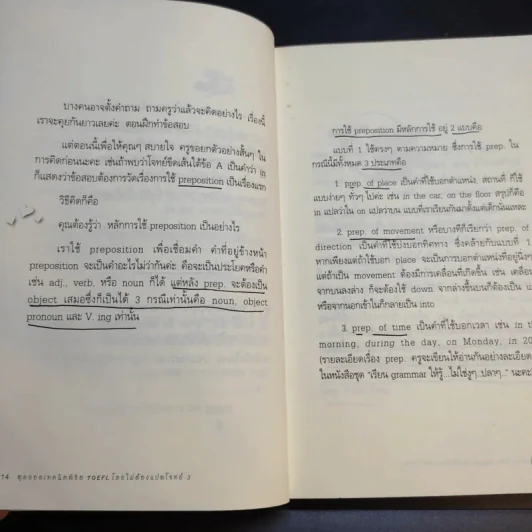 บางคนอาจตั้งคำถาม ถามครูว่าแล้วจะคิดอย่างไร เรื่องนี้
เราจะคุยกันยาวเลยค่ะ ตอนฝึกทำข้อสอบ
แต่ตอนนี้เพื่อให้คุณๆ สบายใจ ครูขอยกตัวอย่างสั้นๆ ใน
การคิดก่อนนะคะ เช่นถ้าพบว่าโจทย์ขีดเส้นใต้ข้อ A เป็นคำว่า in
ก็แสดงว่าข้อสอบต้องการวัดเรื่องการใช้ preposition เป็นเรื่องแรก
วิธีคิดก็คือ
คุณต้องรู้ว่า หลักการใช้ preposition เป็นอย่างไร
เราใช้ preposition เพื่อเชื่อมคำ คำที่อยู่ข้างหน้า
preposition จะเป็นคำอะไรไม่ว่ากันค่ะ คือจะเป็นประโยคหรือคำ
เช่น adj., verb, หรือ noun ก็ได้ แต่หลัง prep. จะต้องเป็น
object เสมอซึ่งก็เป็นได้ 3 กรณีเท่านั้นคือ noun, object
pronoun และ V. ing เท่านั้น
14 สุดยอดเทคนิคพิชิต TOEFL โดยไม่ต้องแปลโจทย์ 3
การใช้ preposition มีหลักการใช้ อยู่ 2 แบบคือ
แบบที่ 1 ใช้ตรงๆ ตามความหมาย ซึ่งการใช้ prep. ใน
กรณีนี้มีทั้งหมด 3 ประเภทคือ
1. prep. of place เป็นคำที่ใช้บอกตำแหน่ง สถานที่ ก็ใช้
แบบง่ายๆ ทั่วๆ ไปค่ะ เช่น in the car, on the floor สรุปก็คือ
in แปลว่าใน on แปลว่าบน แบบที่เราเรียนกันมาตั้งแต่เด็กนั่นแหละ
2. prep. of movement หรือบางทีก็เรียกว่า prep. of
direction เป็นคำที่ใช้บ่งบอกทิศทาง ซึ่งคล้ายกับแบบที่ 1
หากเพียงแต่ถ้าใช้บอก place จะเป็นการบอกตำแหน่งที่อยู่นิ่งๆ
แต่ถ้าเป็น movement ต้องมีการเคลื่อนที่เกิดขึ้น เช่น เคลื่อน
จากบนลงล่าง ก็จะต้องใช้ down จากล่างขึ้นบนก็ต้องเป็น u
หรือจากนอกเข้าในก็กลายเป็น into
3. prep. of time เป็นคำที่ใช้บอกเวลา เช่น in th
morning, during the day, on Monday, in 20
(รายละเอียดเรื่อง prep. ครูจะเขียนให้อ่านกันอย่างละเอียด
ในหนังสือชุด "เรียน grammar ให้รู้...ไม่ใช่งูๆ...ปลาๆ..." นะคะ